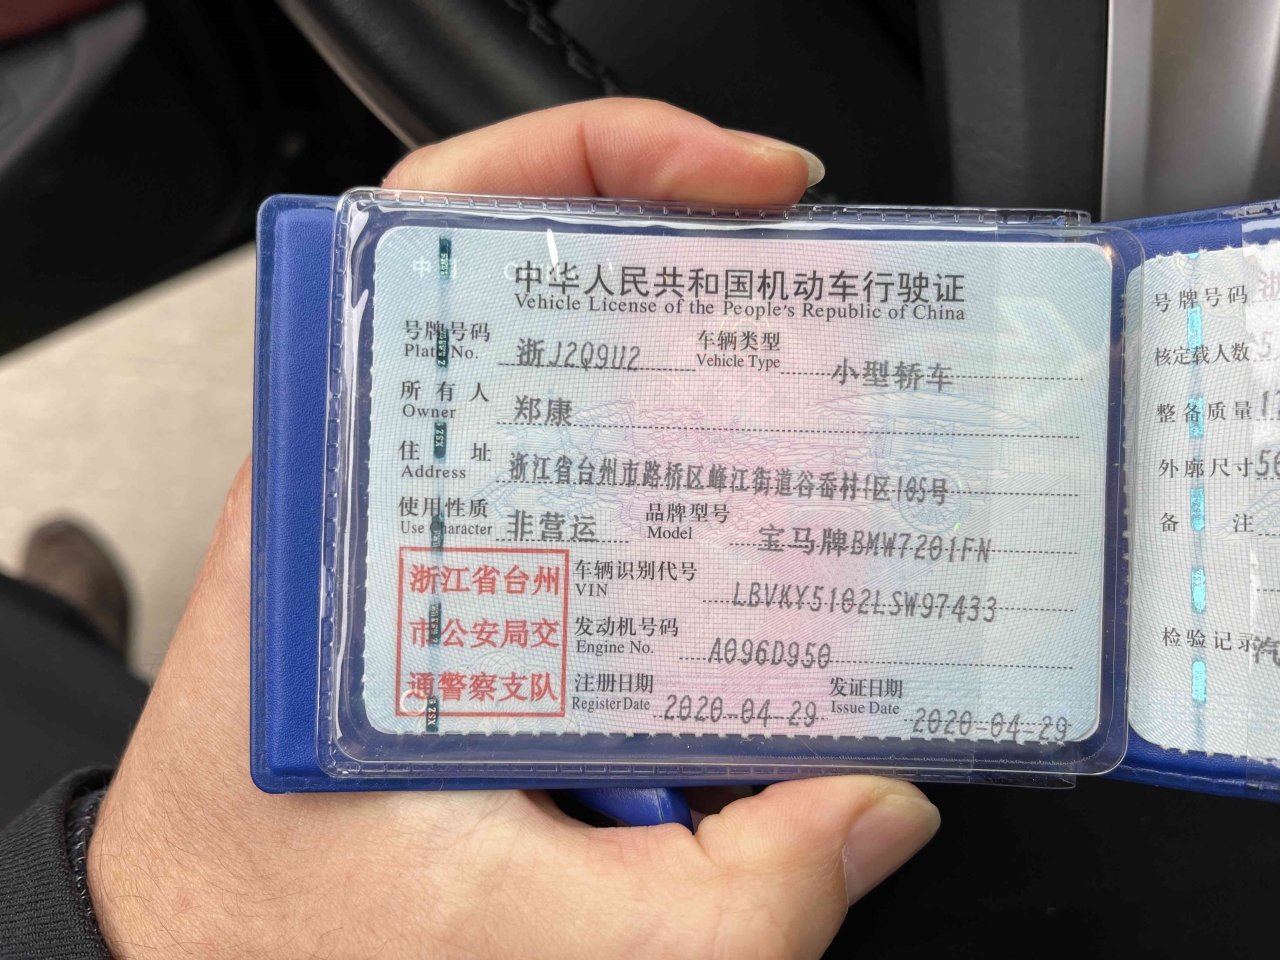 中华人民共和国机动车行驶证
Vehicle License of the People's Republic of China
号牌号码 浙J2Q9U2 车辆类型 小型轿车
Plate No. Vehicle Type
所有人 郑康
Owner
住址 浙江省台州市路桥区峰江街道谷岙村1区105号
Address
使用性质 非营运 品牌型号 宝马牌BMW7201FN
Use Character Model
浙江省台州
市公安局交
通警察支队
车辆识别代号 LBVKY5102LSW97433
VIN
发动机号码 A096D950
Engine No.
注册日期 2020-04-29 发证日期 2020-04-29
Register Date Issue Date
号牌号码 浙
核定载人数 5
整备质量
外廓尺寸 50
备注
检验记录